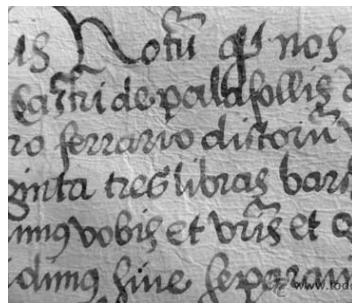 us Notu qd nos
Castri de palafollis
ro ferrario dictoru
ginta tres libras barc
imus vobis et vris et
dimus sive separati
www.tod